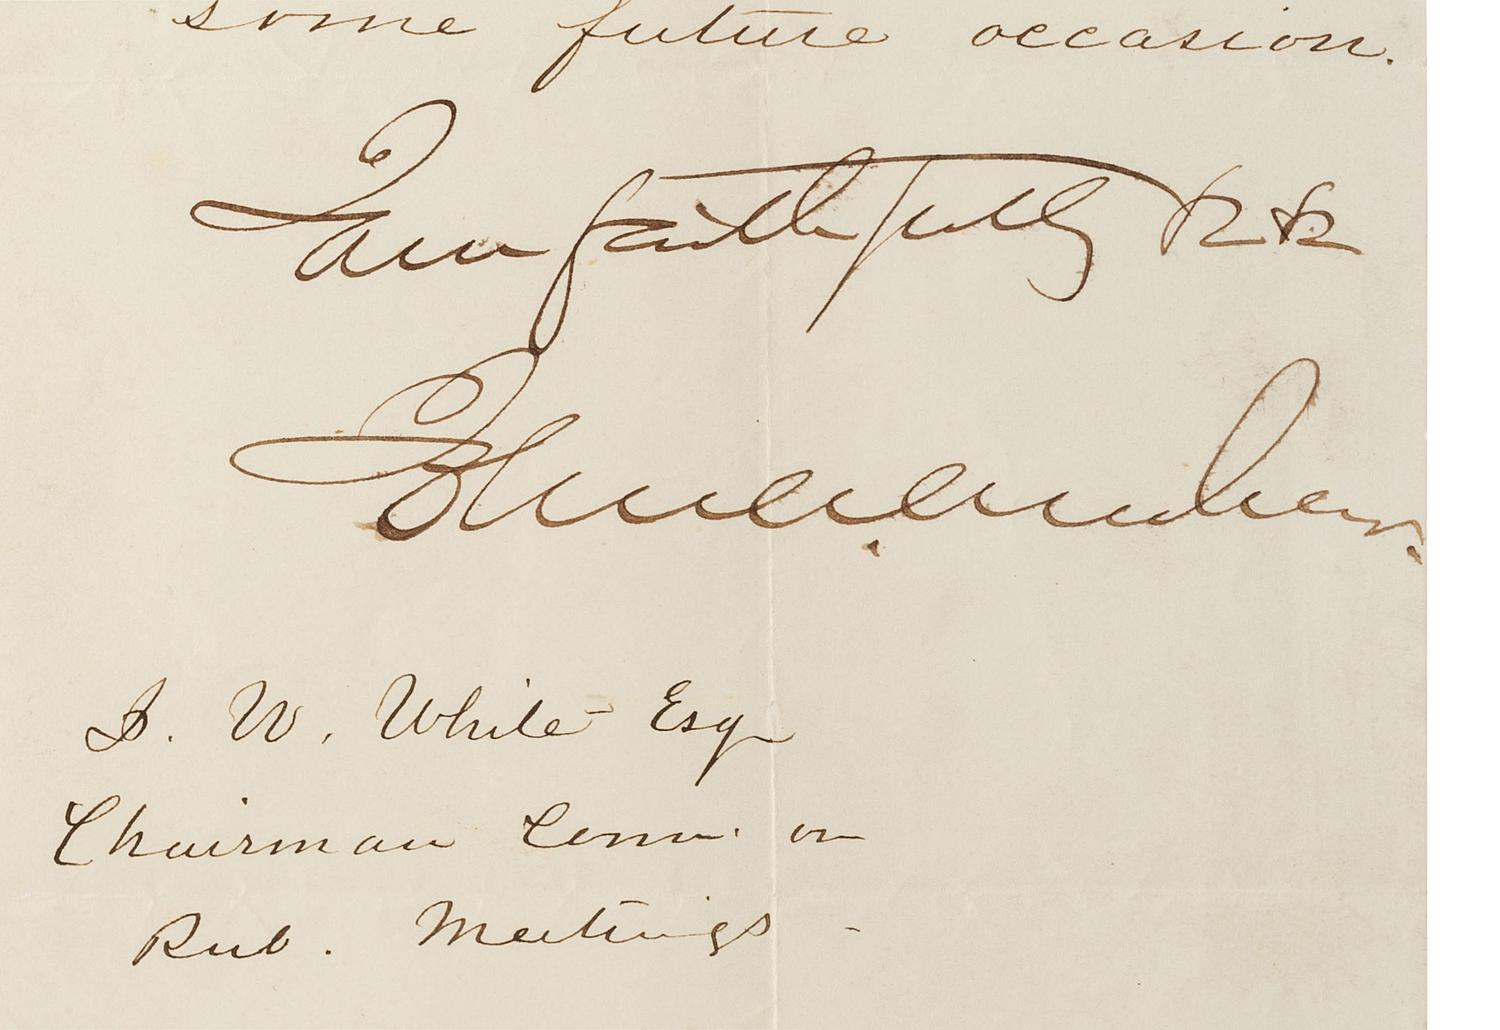 some future occasion.
I am faithfully
W. White Esq
Chairman Com. on
Pub. Meetings -